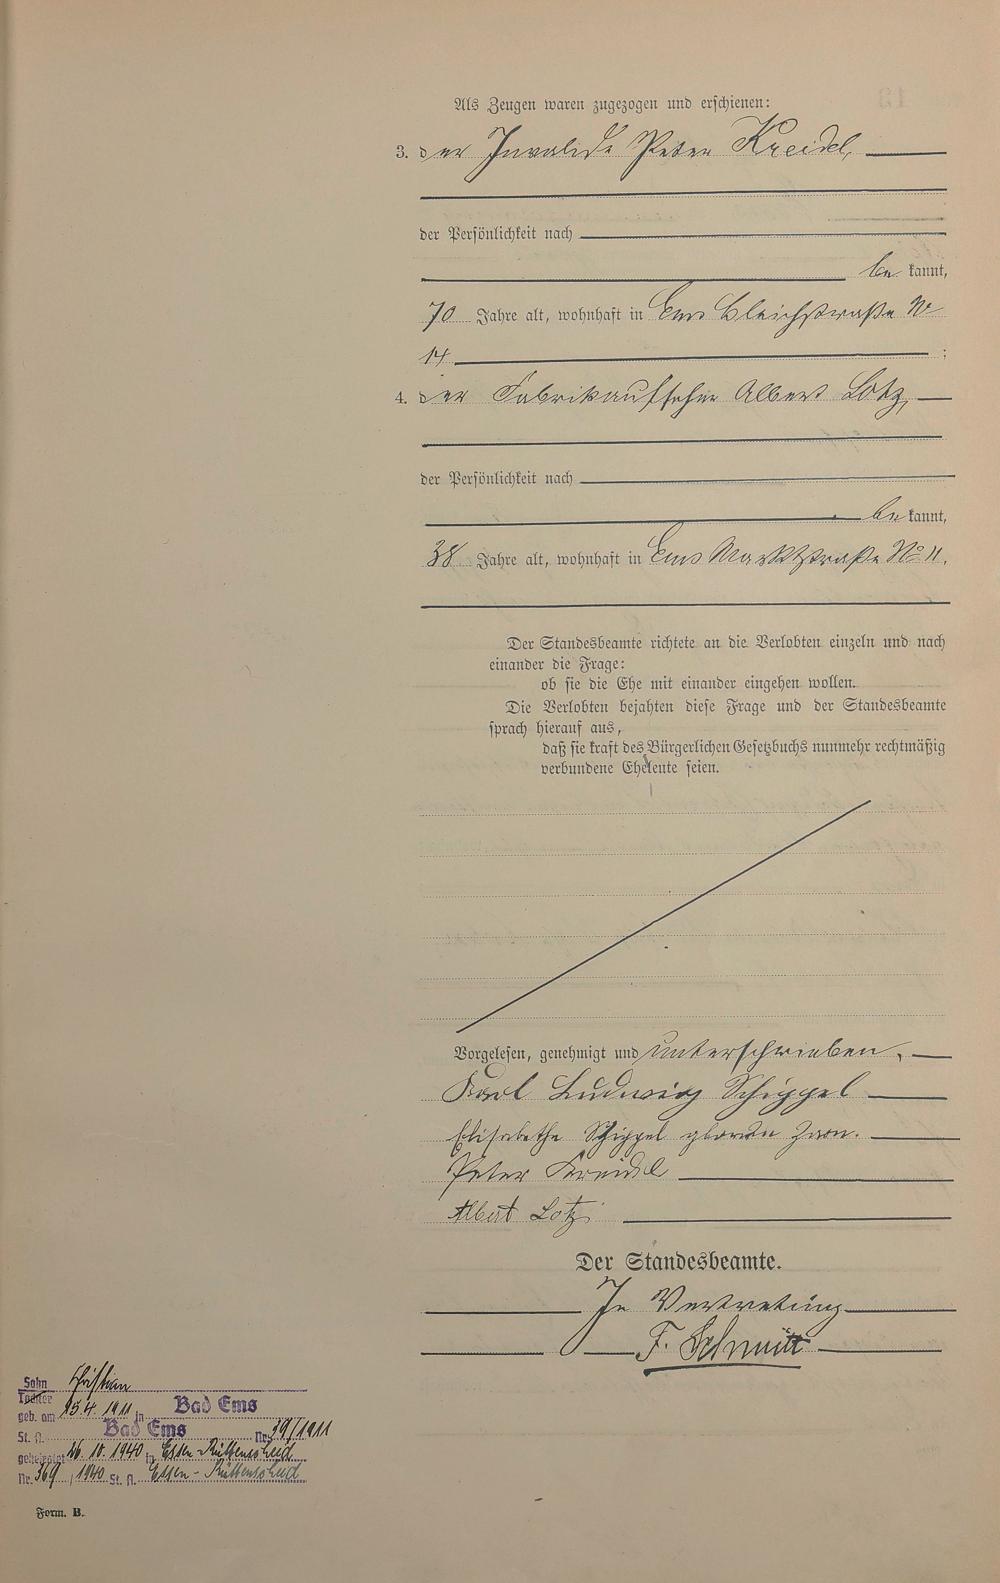 Als Zeugen waren zugezogen und erschienen:
3. der Invalide Peter Kreidel,
der Persönlichkeit nach
be kannt,
70 Jahre alt, wohnhaft in Ems Bleichstraße No
14 ;
4. der Fabrikaufseher Albert Lotz,
der Persönlichkeit nach
be kannt,
38 Jahre alt, wohnhaft in Ems Marktstraße No 11.
Der Standesbeamte richtete an die Verlobten einzeln und nach
einander die Frage:
ob sie die Ehe mit einander eingehen wollen.
Die Verlobten bejahten diese Frage und der Standesbeamte
sprach hierauf aus,
daß sie kraft des Bürgerlichen Gesetzbuchs nunmehr rechtmäßig
verbundene Eheleute seien.
Vorgelesen, genehmigt und unterschrieben.
Karl Ludwig Schippel
Elisabethe Schippel geborene
Peter Kreidel
Albert Lotz
Der Standesbeamte.
In Vertretung
F. Schmitt
Sohn Christian
Tochter
geb. am 25.4.1911 in Bad Ems
St. A. Bad Ems Nr. 39/1911
geheiratet 26.10.1940 in Essen-Rüttenscheid
Nr. 369/1940 St. A. Essen-Rüttenscheid
Form. B.